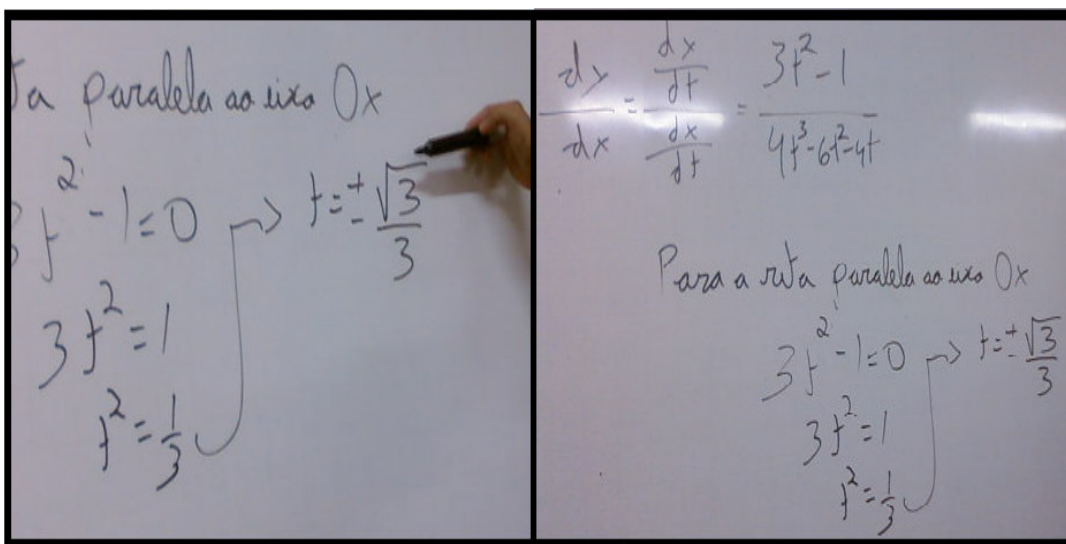 ta paralela ao eixo Ox
3t² - 1 = 0 → t = ± √3/3
3t² = 1
t² = 1/3
dy/dx = (dx/dt)/(dx/dt) = (3t² - 1)/(4t³ - 6t² - 4t)
Para a reta paralela ao eixo Ox
3t² - 1 = 0 → t = ± √3/3
3t² = 1
t² = 1/3